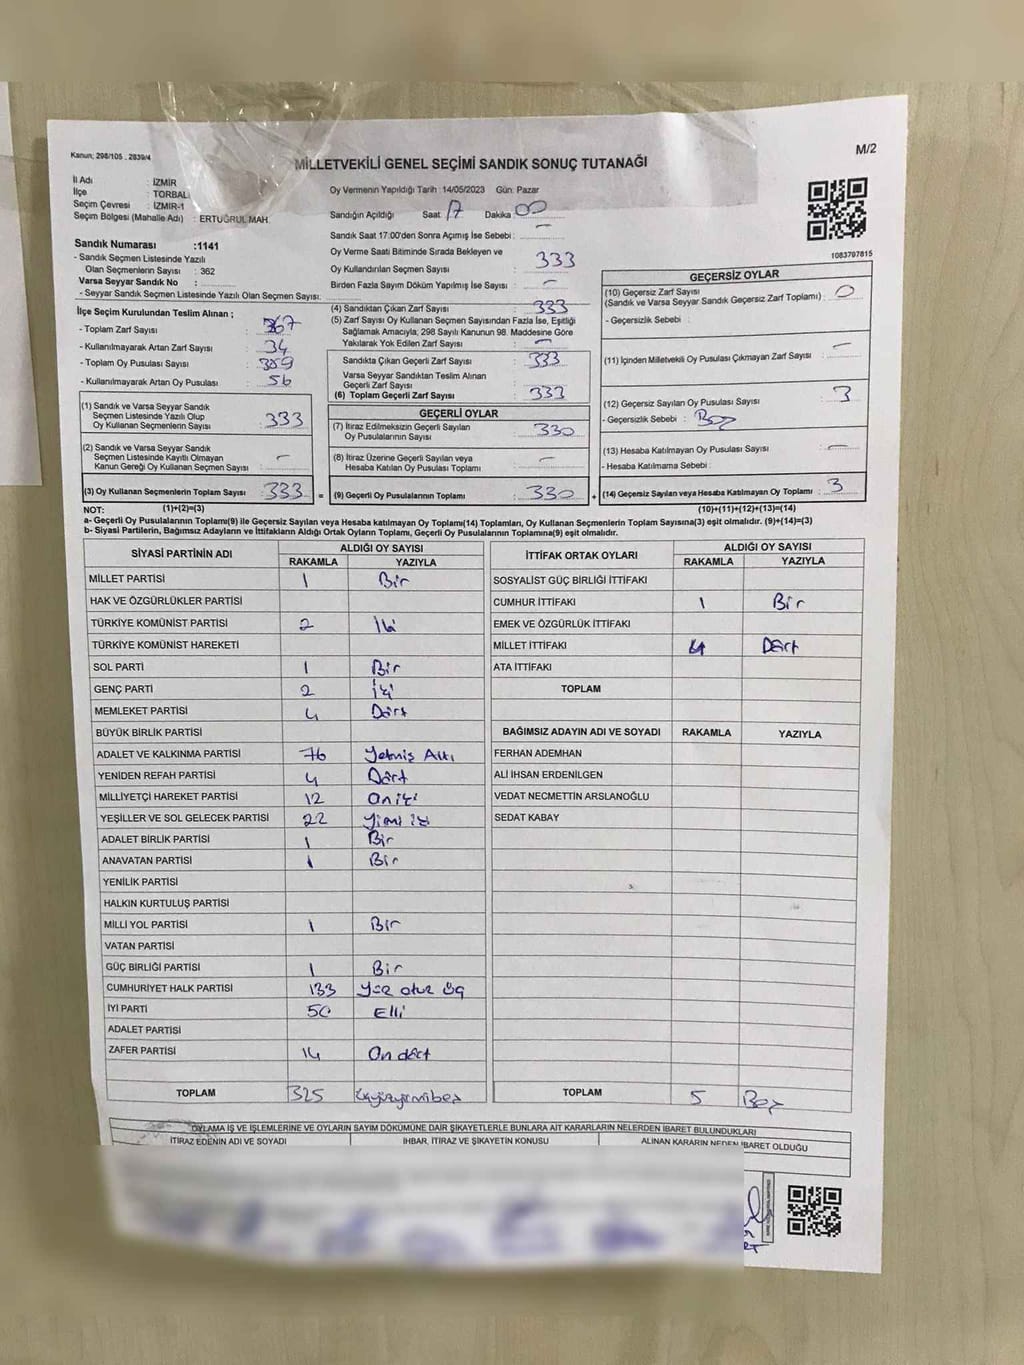 Kanun; 298/105 , 2839/4
MİLLETVEKİLİ GENEL SEÇİMİ SANDIK SONUÇ TUTANAĞI
M/2
İl Adı : İZMİR
İlçe : TORBALI
Seçim Çevresi : İZMİR-1
Seçim Bölgesi (Mahalle Adı) : ERTUĞRUL MAH.
Oy Vermenin Yapıldığı Tarih : 14/05/2023 Gün: Pazar
Sandığın Açıldığı Saat 17 Dakika 00
Sandık Saat 17:00'den Sonra Açımış İse Sebebi : -
Oy Verme Saati Bitiminde Sırada Bekleyen ve
Oy Kullandırılan Seçmen Sayısı 333
Birden Fazla Sayım Döküm Yapılmış İse Sayısı : -
1083797815
Sandık Numarası :1141
- Sandık Seçmen Listesinde Yazılı
Olan Seçmenlerin Sayısı : 362
Varsa Seyyar Sandık No :
- Seyyar Sandık Seçmen Listesinde Yazılı Olan Seçmen Sayısı:
İlçe Seçim Kurulundan Teslim Alınan ;
- Toplam Zarf Sayısı : 367
- Kullanılmayarak Artan Zarf Sayısı : 34
- Toplam Oy Pusulası Sayısı : 389
- Kullanılmayarak Artan Oy Pusulası : 56
(1) Sandık ve Varsa Seyyar Sandık
Seçmen Listesinde Yazılı Olup
Oy Kullanan Seçmenlerin Sayısı : 333
(2) Sandık ve Varsa Seyyar Sandık
Seçmen Listesinde Kayıtlı Olmayan
Kanun Gereği Oy Kullanan Seçmen Sayısı : -
(3) Oy Kullanan Seçmenlerin Toplam Sayısı : 333 =
(4) Sandıktan Çıkan Zarf Sayısı : 333
(5) Zarf Sayısı Oy Kullanan Seçmen Sayısından Fazla İse, Eşitliği
Sağlamak Amacıyla; 298 Sayılı Kanunun 98. Maddesine Göre
Yakılarak Yok Edilen Zarf Sayısı : -
Sandıkta Çıkan Geçerli Zarf Sayısı : 333
Varsa Seyyar Sandıktan Teslim Alınan
Geçerli Zarf Sayısı :
(6) Toplam Geçerli Zarf Sayısı : 333
GEÇERLİ OYLAR
(7) İtiraz Edilmeksizin Geçerli Sayılan
Oy Pusulalarının Sayısı : 330
(8) İtiraz Üzerine Geçerli Sayılan veya
Hesaba Katılan Oy Pusulası Toplamı : -
(9) Geçerli Oy Pusulalarının Toplamı : 330 +
GEÇERSİZ OYLAR
(10) Geçersiz Zarf Sayısı
(Sandık ve Varsa Seyyar Sandık Geçersiz Zarf Toplamı) : 0
- Geçersizlik Sebebi :
(11) İçinden Milletvekili Oy Pusulası Çıkmayan Zarf Sayısı : -
(12) Geçersiz Sayılan Oy Pusulası Sayısı : 3
- Geçersizlik Sebebi : Boş
(13) Hesaba Katılmayan Oy Pusulası Sayısı : -
- Hesaba Katılmama Sebebi :
(14) Geçersiz Sayılan veya Hesaba Katılmayan Oy Toplamı : 3
NOT: (1)+(2)=(3) (10)+(11)+(12)+(13)=(14)
a- Geçerli Oy Pusulalarının Toplamı(9) ile Geçersiz Sayılan veya Hesaba katılmayan Oy Toplamı(14) Toplamları, Oy Kullanan Seçmenlerin Toplam Sayısına(3) eşit olmalıdır. (9)+(14)=(3)
b- Siyasi Partilerin, Bağımsız Adayların ve İttifakların Aldığı Oyların Toplamı, Geçerli Oy Pusulalarının Toplamına(9) eşit olmalıdır.
SİYASİ PARTİNİN ADI ALDIĞI OY SAYISI
RAKAMLA YAZIYLA
MİLLET PARTİSİ 1 Bir
HAK VE ÖZGÜRLÜKLER PARTİSİ
TÜRKİYE KOMÜNİST PARTİSİ 2 İki
TÜRKİYE KOMÜNİST HAREKETİ
SOL PARTİ 1 Bir
GENÇ PARTİ 2 İki
MEMLEKET PARTİSİ 4 Dört
BÜYÜK BİRLİK PARTİSİ
ADALET VE KALKINMA PARTİSİ 76 Yetmiş Altı
YENİDEN REFAH PARTİSİ 4 Dört
MİLLİYETÇİ HAREKET PARTİSİ 12 On iki
YEŞİLLER VE SOL GELECEK PARTİSİ 22 Yirmi iki
ADALET BİRLİK PARTİSİ 1 Bir
ANAVATAN PARTİSİ 1 Bir
YENİLİK PARTİSİ
HALKIN KURTULUŞ PARTİSİ
MİLLİ YOL PARTİSİ 1 Bir
VATAN PARTİSİ
GÜÇ BİRLİĞİ PARTİSİ 1 Bir
CUMHURİYET HALK PARTİSİ 133 Yüz otuz üç
İYİ PARTİ 50 Elli
ADALET PARTİSİ
ZAFER PARTİSİ 14 On dört
TOPLAM 325
İTTİFAK ORTAK OYLARI ALDIĞI OY SAYISI
RAKAMLA YAZIYLA
SOSYALİST GÜÇ BİRLİĞİ İTTİFAKI
CUMHUR İTTİFAKI 1 Bir
EMEK VE ÖZGÜRLÜK İTTİFAKI
MİLLET İTTİFAKI 4 Dört
ATA İTTİFAKI
TOPLAM
BAĞIMSIZ ADAYIN ADI VE SOYADI RAKAMLA YAZIYLA
FERHAN ADEMHAN
ALİ İHSAN ERDENİLGEN
VEDAT NECMETTİN ARSLANOĞLU
SEDAT KABAY
TOPLAM 5 Beş
OYLAMA İŞ VE İŞLEMLERİNE VE OYLARIN SAYIM DÖKÜMÜNE DAİR ŞİKAYETLERLE BUNLARA AİT KARARLARIN NELERDEN İBARET BULUNDUKLARI
İTİRAZ EDENİN ADI VE SOYADI İHBAR, İTİRAZ VE ŞİKAYETİN KONUSU ALINAN KARARIN NEDEN İBARET OLDUĞU